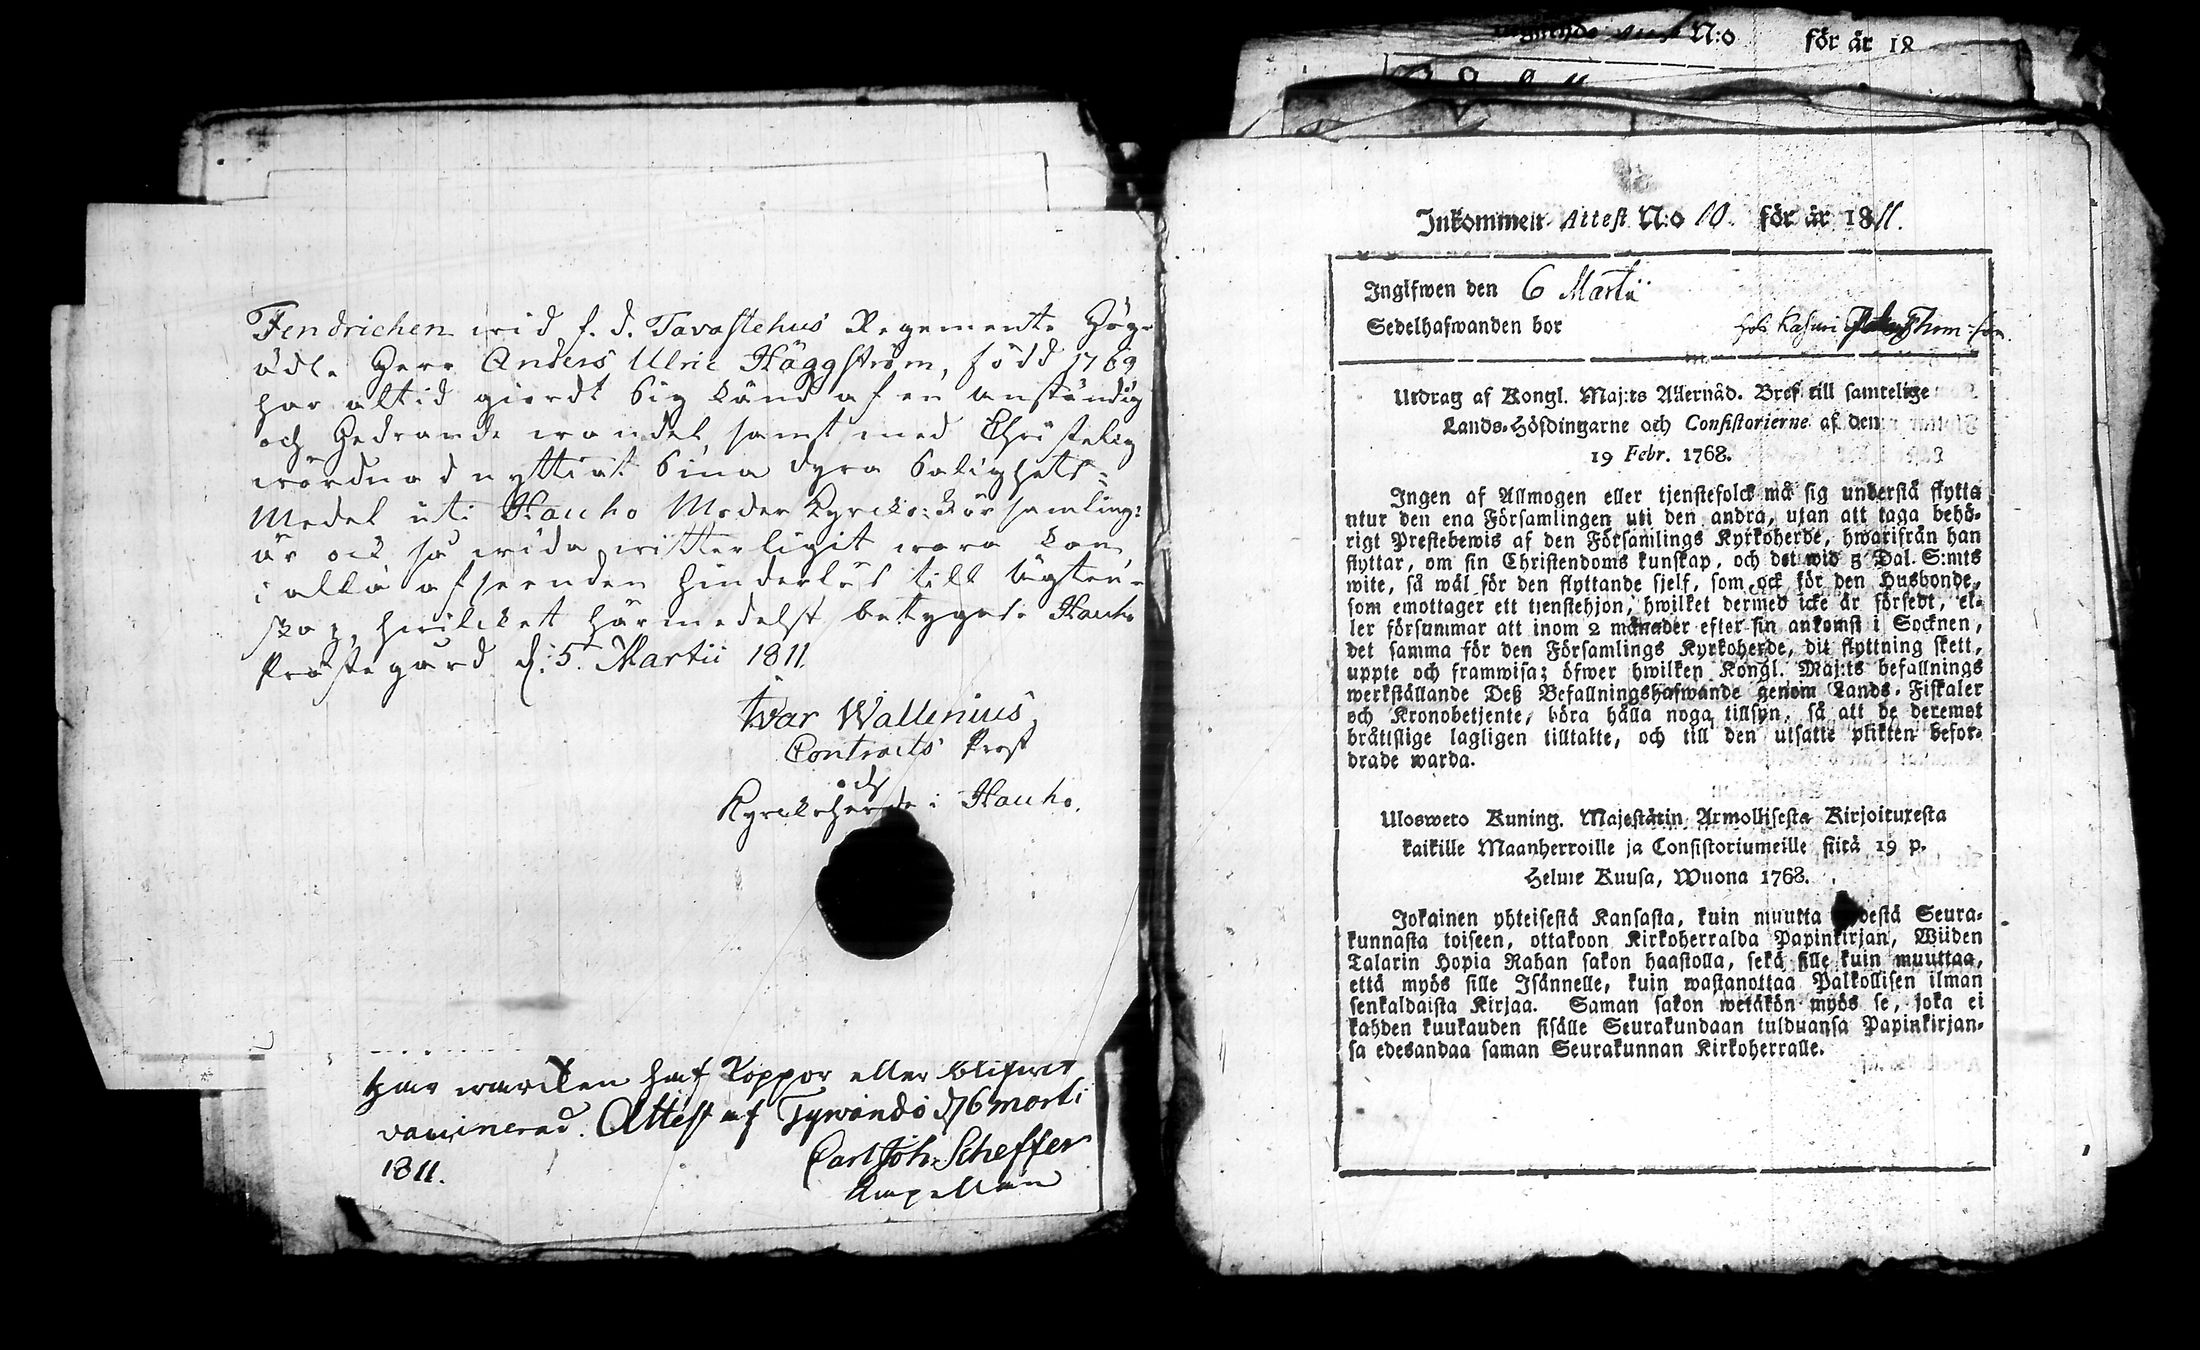 Fendrichen wid f. d. Tavastehus Regemente Hög-
ädle Herr Anders Ulric Häggström, född 1769
har altid giordt sig känd af en anständig
och Hedrande wandel, samt med Christelig
wördnad nyttiat sina dyra Salighets-
Medel uti Hauho Moder Kyrcko-Församling;
är ock så wida witterligit wara kan
i alla afseenden hinderlös till ägten-
skap, hwilcket härmedelst betygas. Hauho
Prästegård d. 5. Martii 1811.
Iwar Wallenius,
Contracts Prost
och
Kyrckoherde i Hauho.
Har warcken haft Koppor eller blifwit
vaccinerad. Attest af Tywändö d. 6 marti
1811.
Carl Joh. Scheffer
Capellan
N:o för år 18
Inkommen Attest N:o 10. för år 1811.
Ingifwen den 6 Martii
Sedelhafwanden bor hos
Utdrag af Kongl. Maj:ts Allernåd. Bref till samtelige
Lands-Höfdingarne och Consistorierne af den
19 Febr. 1768.
Ingen af Allmogen eller tjenstefolck må sig understå flytta
utur den ena Församlingen uti den andra, utan att taga behö-
rigt Prestebewis af den Församlings Kyrkoherde, hwarifrån han
flyttar, om sin Christendoms kunskap, och det wid 5 Dal. S:mts
wite, så wäl för den flyttande sjelf, som ock för den Husbonde,
som emottager ett tienstehjon, hwilket dermed icke är försedt, el-
ler försummar att inom 2 månader efter sin ankomst i Socknen,
det samma för den Församlings Kyrkoherde, dit flyttning skett,
uppte och framwisa; öfwer hwilken Kongl. Maj:ts befallnings
werkställande Deß Befallningshafwande genom Lands-Fiskaler
och Kronobetjente, böra hålla noga tillsyn, så att de deremot
bråttslige lagligen tilltalte, och till den utsatte plikten befor-
drade warda.
Ulosweto Kuning. Majestätin Armollisesta Kirjoituxesta
kaikille Maanherroille ja Consistoriumeille siitä 19 p.
Helme Kuusa, Wuona 1768.
Jokainen yhteisestä Kansasta, kuin muutta Seura-
kunnasta toiseen, ottakoon Kirkoherralda Papinkirjan, Wiiden
Talarin Hopia Rahan sakon haastolla, sekä sille kuin muuttaa,
että myös sille Isännelle, kuin wastanottaa Palkollisen ilman
senkaldaista Kirjaa. Saman sakon wetäkön myös se, joka ei
kahden kuukauden sisälle Seurakundaan tulduansa Papinkirjan-
sa edesandaa saman Seurakunnan Kirkoherralle.